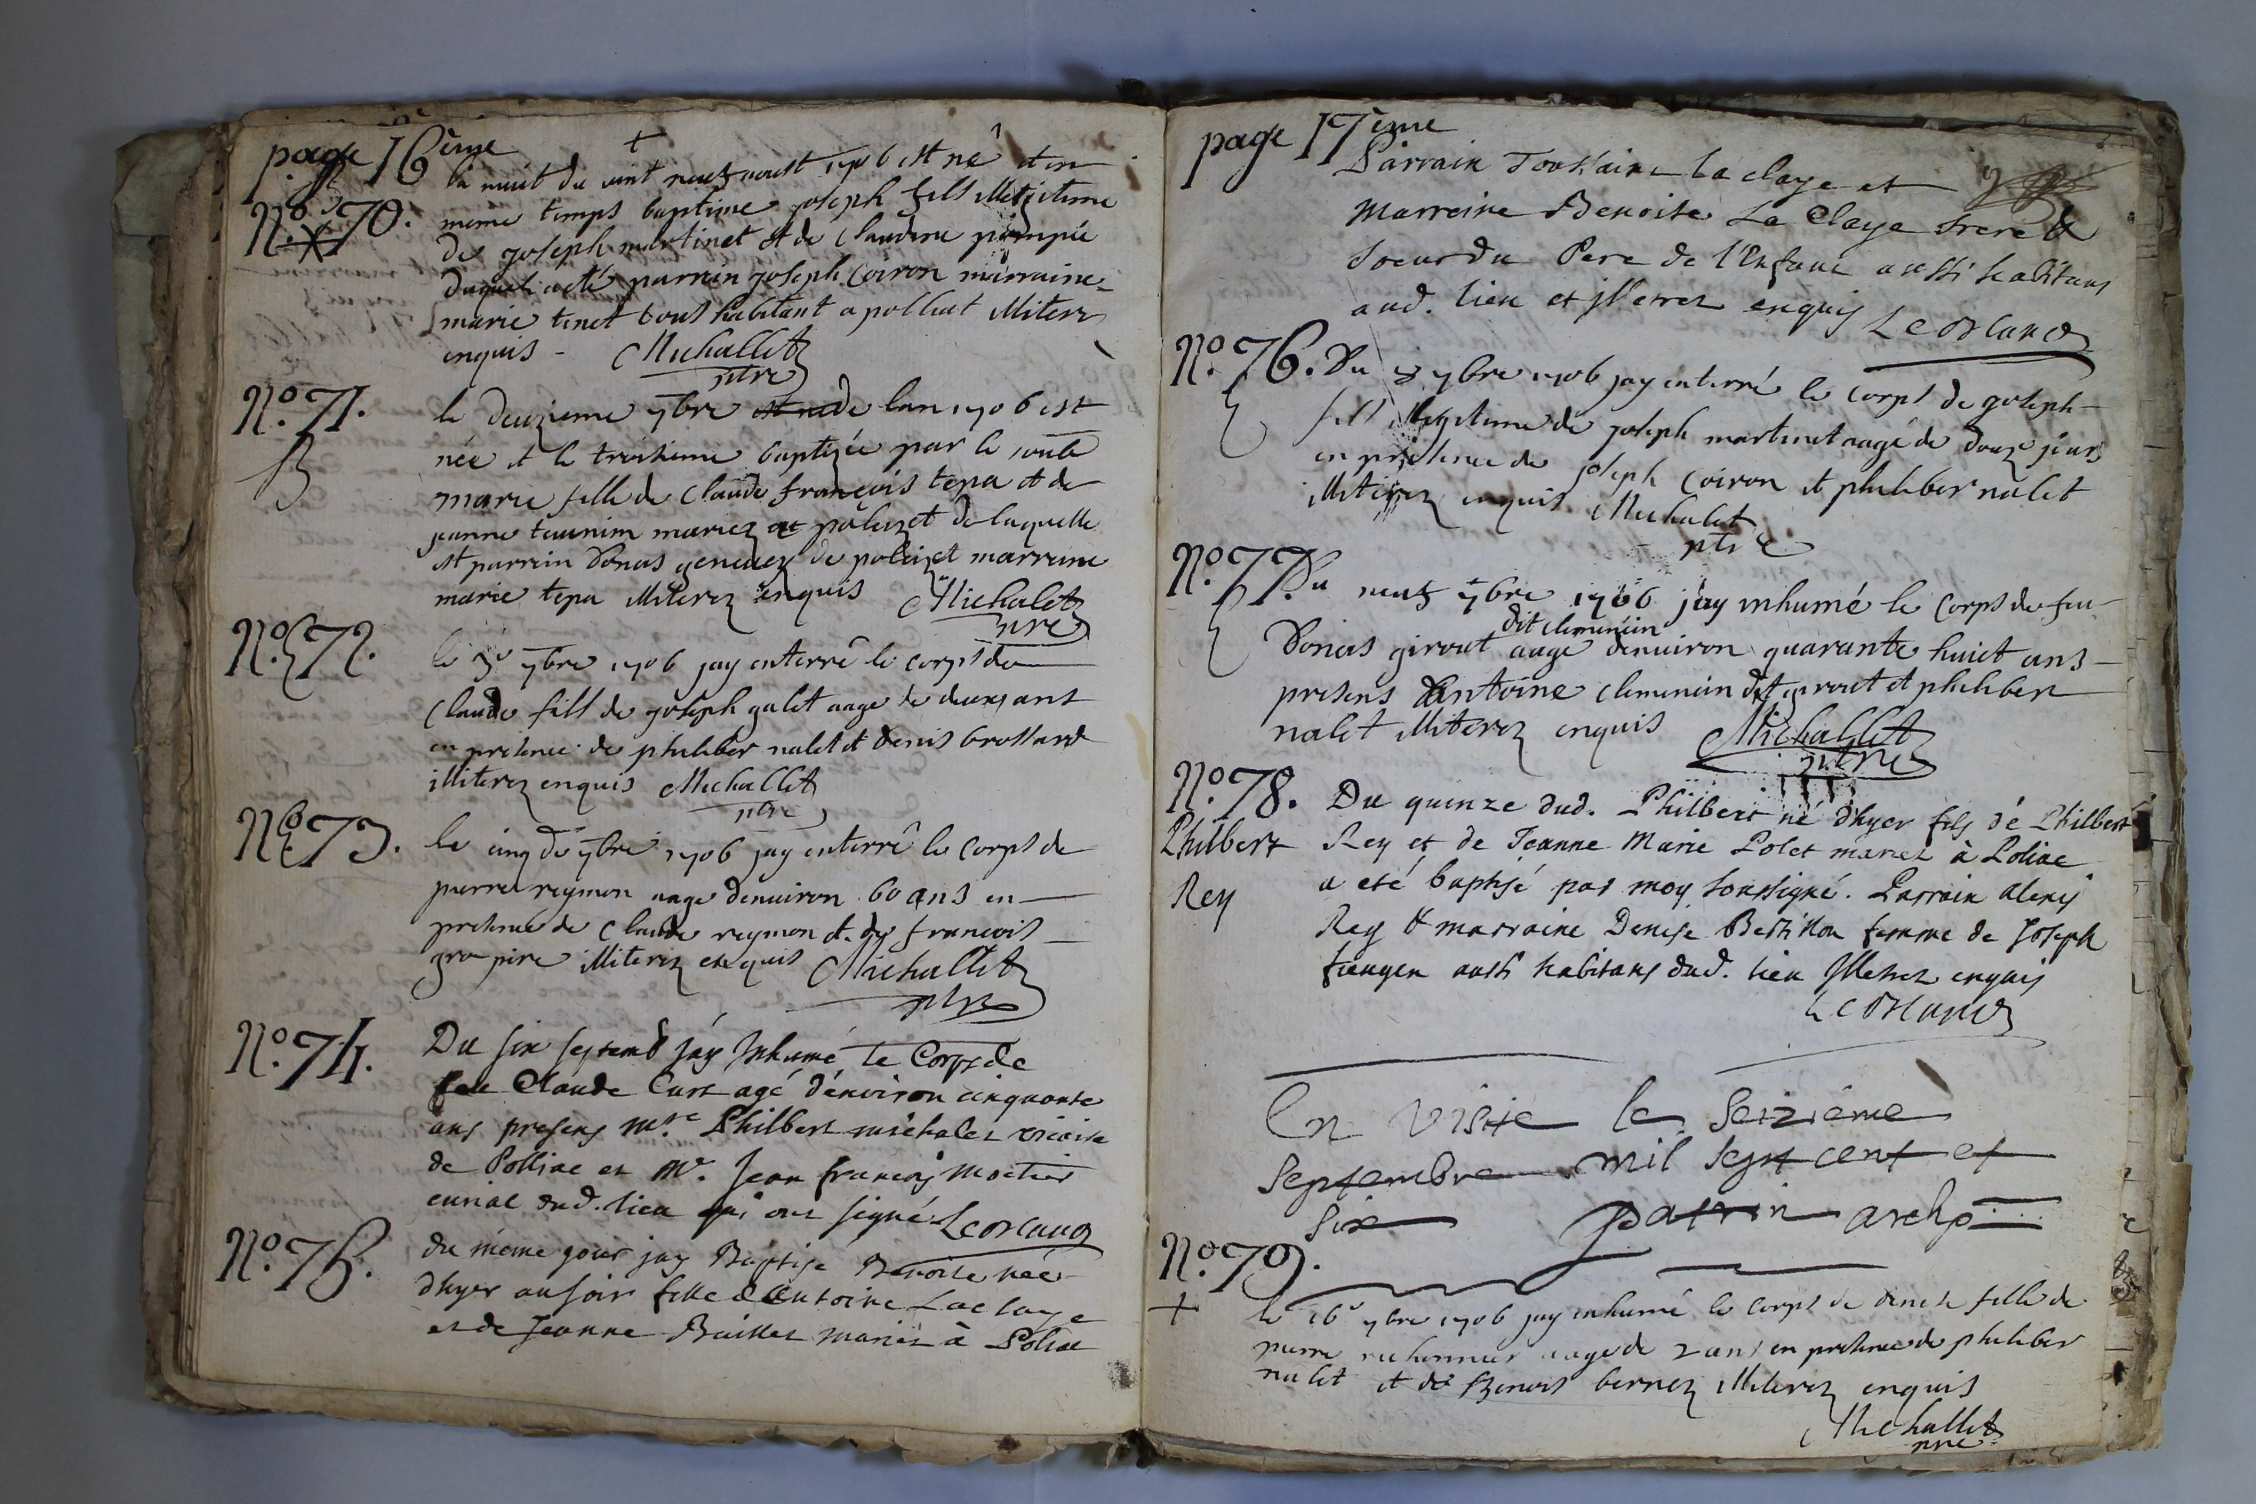 page 16ème
+
la nuit du vint neuf aoust 1706 est né et en
N.o 70. meme temps baptise joseph fils illegitime
de joseph martinet et de claudine pompée
duquel a eté parrin joseph Coiron marraine
marie tinet tous habitant a polliat illiterez
enquis - Michallet
ptre
N.o 71. le deuzieme 7bre de lan 1706 est
née et le troisieme baptizée par le
marie fille de Claude françois tepa et de
janne mariez a de laquelle
est parrin Donas de marreine
marie tepa illiterez enquis Michalet
ptre
N.o 72. le 3e 7bre 1706 jay enterré le corps de
Claude fils de joseph galet aage de deux ans
en presence de philiber nalet et denis brossard
illiterez enquis Michallet
ptre
N.o 73. le cinq de 7bre 1706 jay enterré le corps de
pierre reymon aage denuiron 60 ans en
presence de Claude reymon et de francois
gropire illiterez enquis Michallet
ptre
N.o 74. Du six septemb jáy Inhumé le Corps de
feu Claude Curt agé d'énviron cinquante
ans presens mre. Philbert michalet vicaire
de Polliac et Mr. Jean françois Moctier
curial dud. lieu qui ont signé Leblanc
N.o 75. du méme jour jay Baptise Benoite née
d'hyer au soir fille d'Antoine Laclaye
et de Jeanne Buillet mariez à Poliac
page 17ème
Parrain Toussaint La claye et
Marreine Benoite La Claye frere &
soeur du Pere de l'Enfant aussi habitans
aud. lieu et Illetrez enquis Leblanc
N.o 76. Du 7bre 1706 jay enterré le corps de joseph
fils illegitime de joseph martinet aagé de douze jours
en presence de joseph Coiron et philiber nalet
illiterez enquis Michalet
ptre
N.o 77. Du neuf 7bre 1706 jay inhumé le Corps de feu
dit clemencin
Donas girout aage denuiron quarante huict ans
presens Antoine clemencin dit girout et philiber
nalet illiterez enquis Michallet
ptre
N.o 78. Du quinze dud. Philbert né d'hyer fils dé Philbert
Philbert Rey et de Jeanne Marie Polet mariez à Poliac
Rey a eté baptisé par moy soussigné. Parrain alexis
Rey & marraine Denise Bertillon femme de Joseph
aussi habitans dud. lieu Illetrez enquis
Leblanc
En Visite le Seizième
Septembre mil Sept cent et
Six patrin archip
N.o 79.
+ le 16e 7bre 1706 jay inhumé le corps de denise fille de
pierre aagé de 2 ans en presence de philiber
nalet et de Benois bernez illiterez enquis
Michallet
ptre